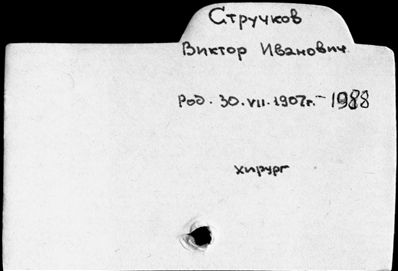 Стручков
Виктор Иванович.
Род. 30.VII.1907г.- 1988
хирург